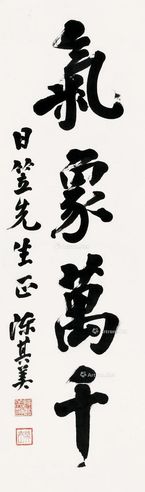 氣象萬千
日笠先生正
陳其美